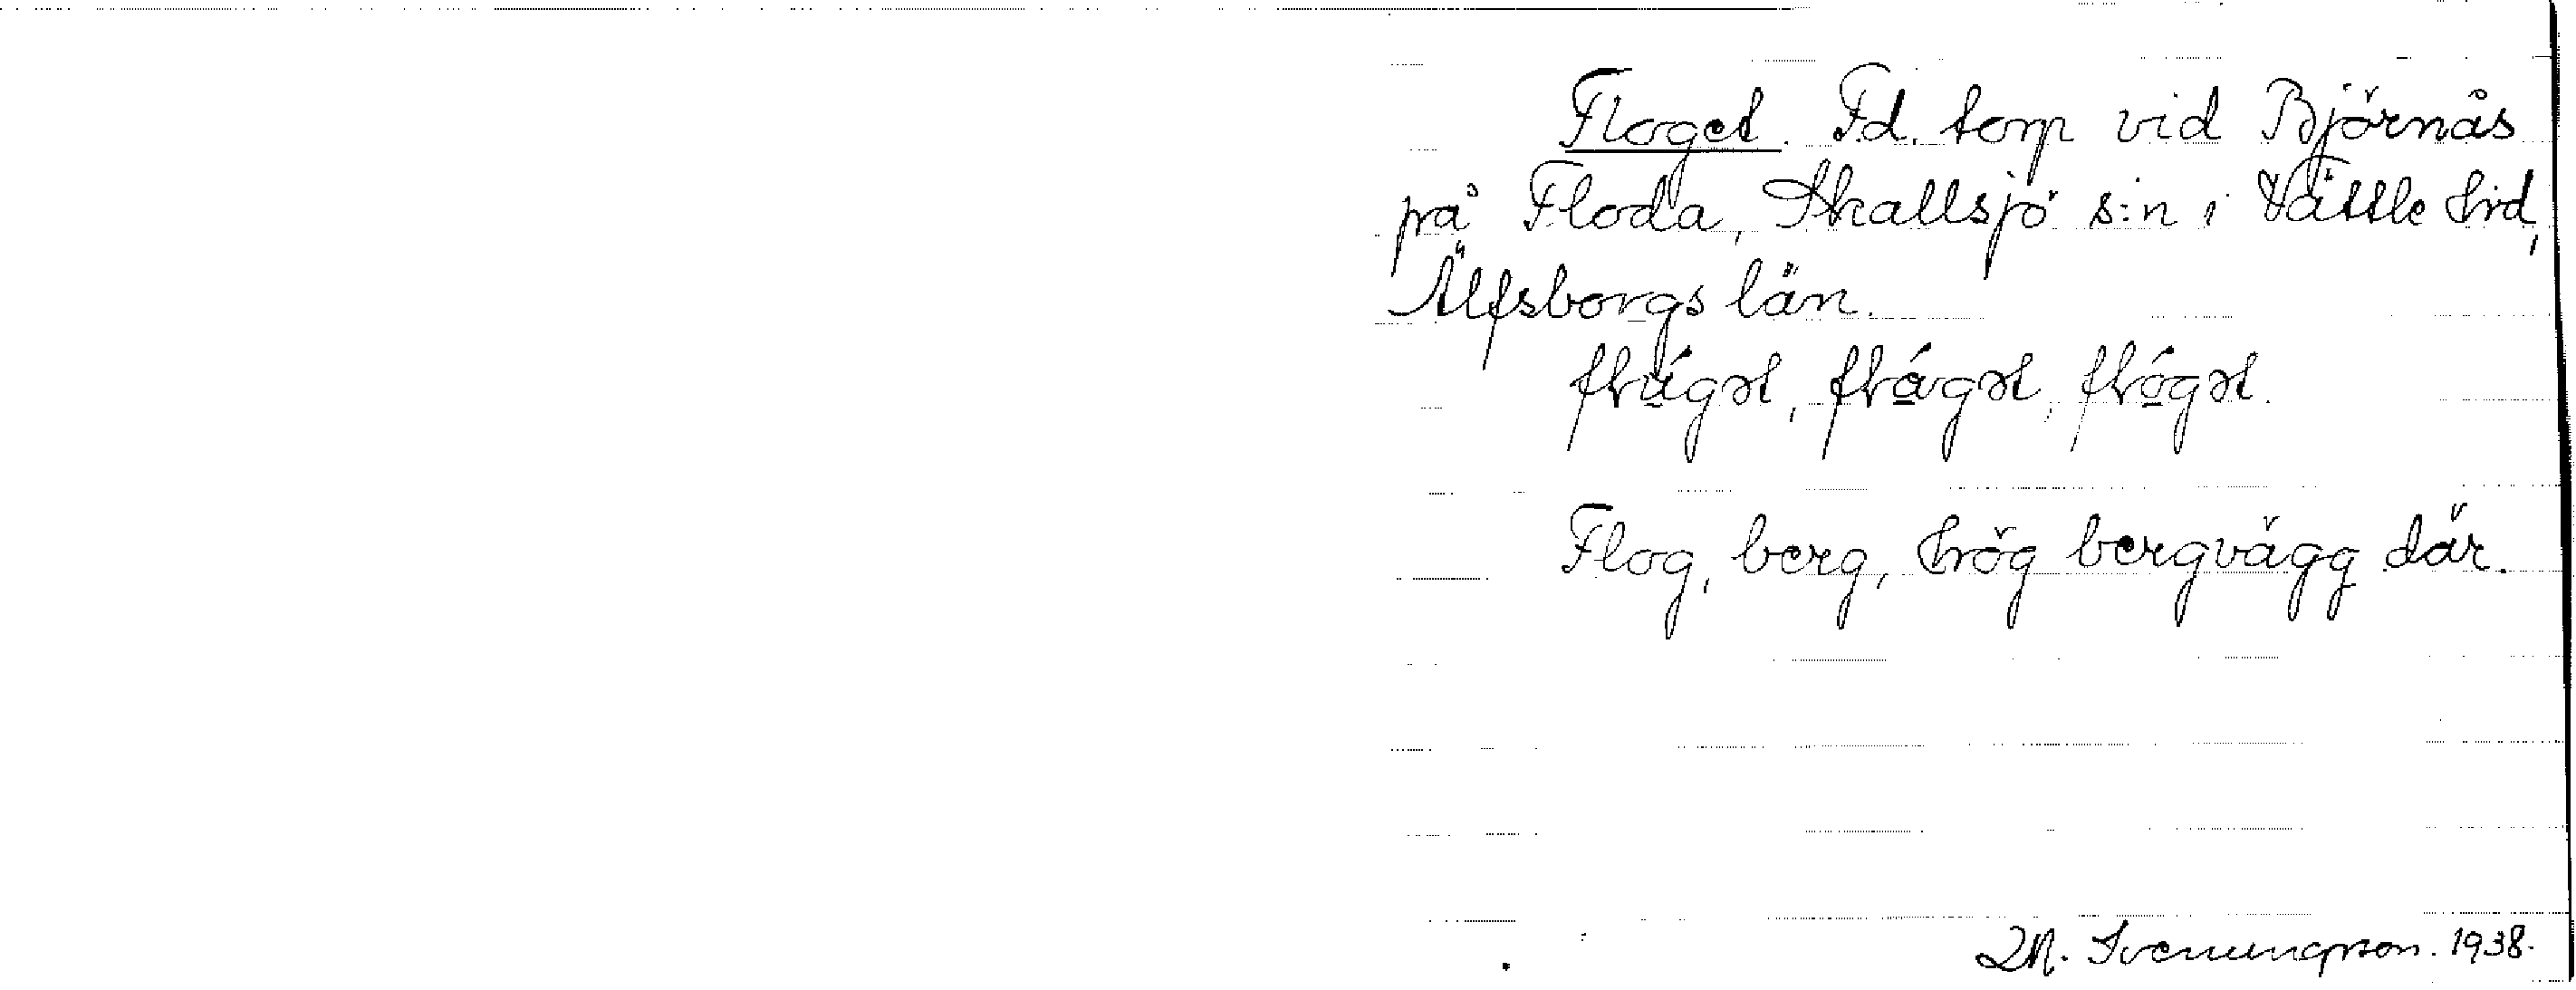 Floget. Fd. torp vid Björnås
på Floda, Skallsjö s:n i Vättle hrd,
Älfsborgs län.
Flog, berg, hög bergvägg där.
M. Svenungsson. 1938.